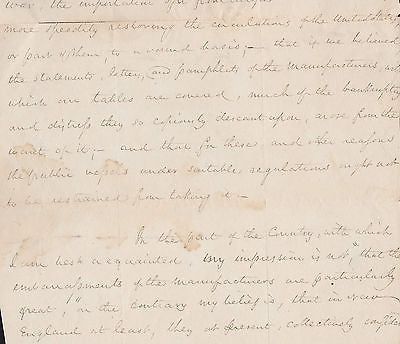 war, the importation
more speedily restoring the circulations of the United States,
or part of them, to a sound basis;— that if we believed
the statements, letters, and pamphlets of the Manufacturers, with
which our tables are covered, much of the bankruptcy
and distress they so copiously descant upon, arose from the
want of it;— and that for these, and other reasons
the public vessels under suitable regulations ought not
to be restrained from taking it—
In the part of the Country, with which
I am best acquainted, my impression is not, "that the
embarrassments of the manufacturers are particularly
great," on the contrary my belief is, that in New
England at least, they at present, collectively